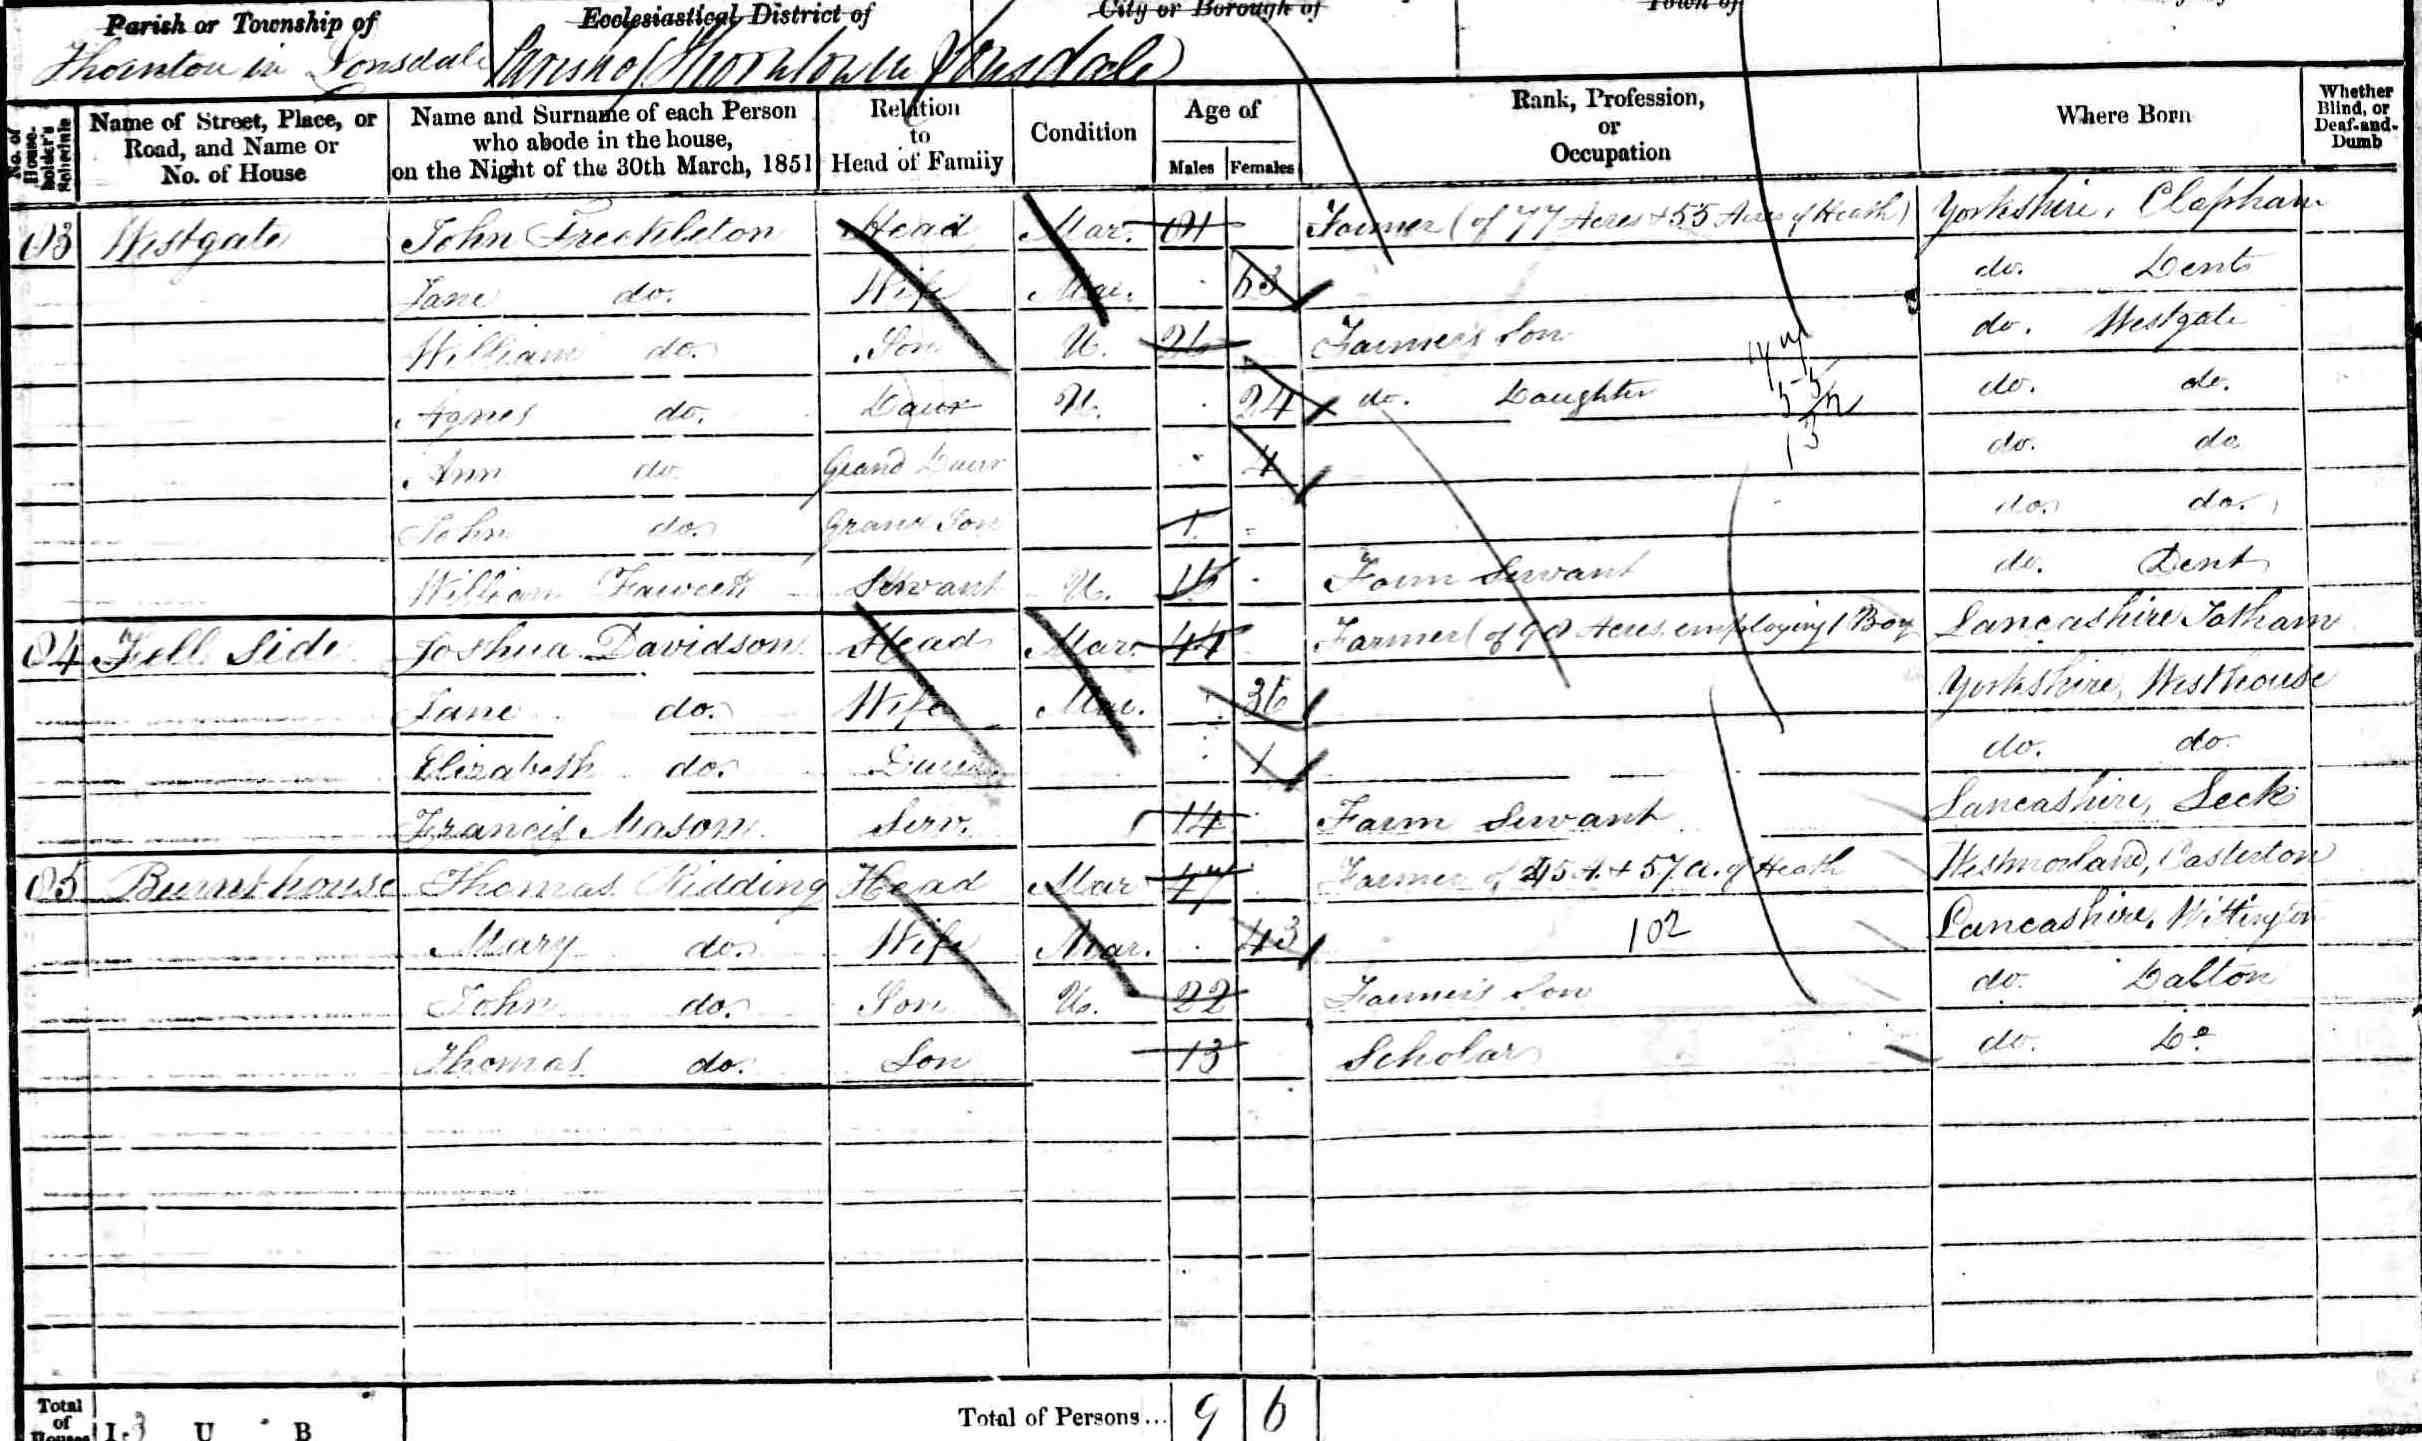 Parish or Township of Ecclesiastical District of City or Borough of Town of
Thornton in Lonsdale Parish of Thornton in Lonsdale
No. of House-holder's Schedule
Name of Street, Place, or Road, and Name or No. of House
Name and Surname of each Person who abode in the house, on the Night of the 30th March, 1851
Relation to Head of Family
Condition
Age of Males Females
Rank, Profession, or Occupation
Where Born
Whether Blind, or Deaf-and-Dumb
103 Westgate John Freckleton Head Mar. Farmer (of 77 Acres + 55 Acres of Heath) Yorkshire, Clapham
Jane do. Wife Mar. 63 do. Dent
William do. Son U. 26 Farmer's Son do. Westgate
Agnes do. Daur U. 24 do. Daughter do. do.
77
55
132
Ann do. Grand Daur 4 do. do.
John do. Grand Son 1 do. do.
William Fawcett Servant U. Farm Servant do. Dent
104 Fell Side Joshua Davidson Head Mar. 44 Farmer (of 90 Acres employing 1 Boy Lancashire Tatham
Jane do. Wife Mar. 36 Yorkshire, Westhouse
Elizabeth do. Daur 1 do. do.
Francis Mason Serv. 14 Farm Servant Lancashire, Leck
105 Burnt house Thomas Ridding Head Mar 47 Farmer of 45 A. + 57 a. of Heath Westmorland, Casterton
Mary do. Wife Mar. 43 102 Lancashire, Wittington
John do. Son U. 22 Farmer's Son do. Dalton
Thomas do. Son 13 Scholar do. Do
Total of Houses I. 3 U B Total of Persons... 9 6